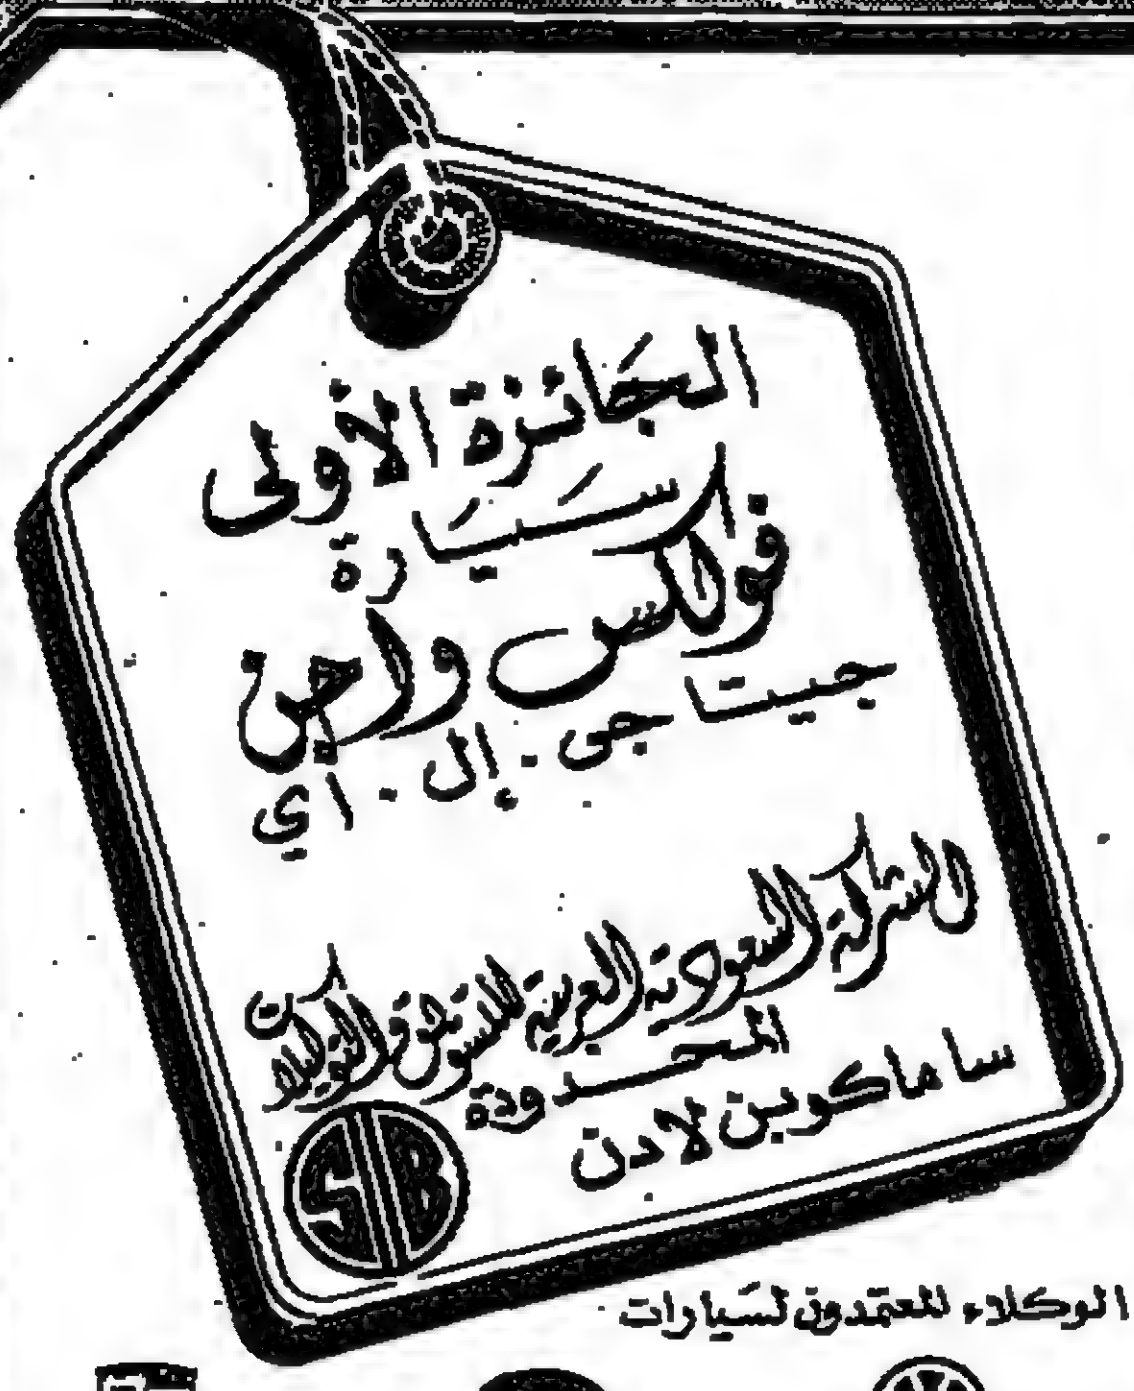 الجَائزة الأولى
سَيَارة
فولكس واجن
جيتا جى . إل . آي
الشركة السعودية العربية للتسويق والتوكيلات
المحدودة
ساماكو بن لادن
SB
الوكلاء المعتمدون لسَيارات